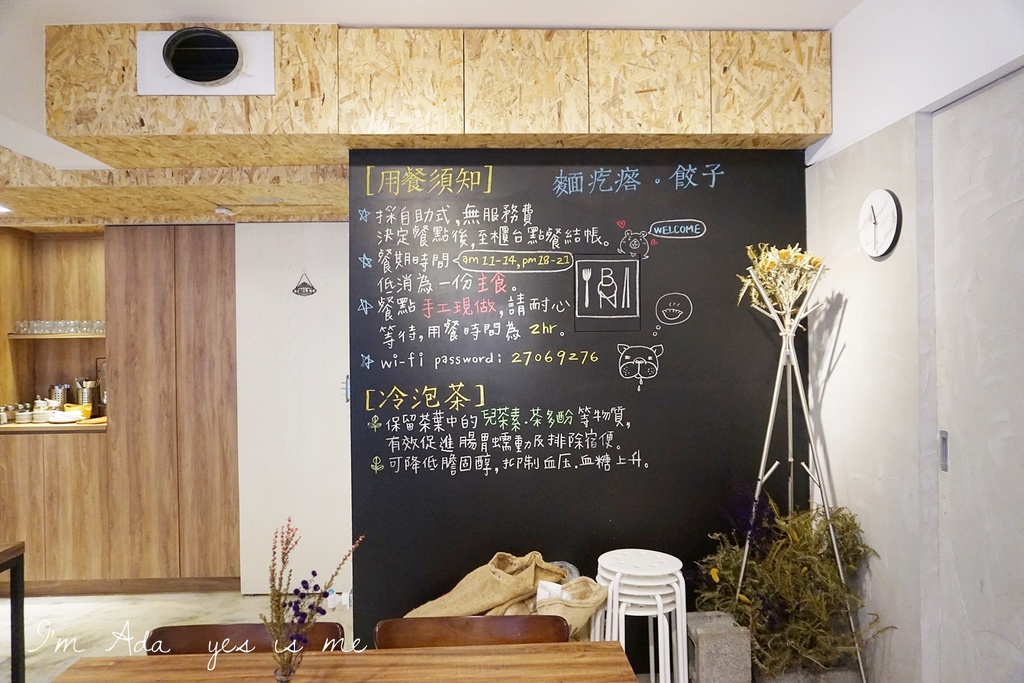 [用餐須知] 麵疙瘩。餃子
採自助式,無服務費
決定餐點後,至櫃台點餐結帳。
WELCOME
餐期時間 am11-14,pm18-21
低消為一份主食。
餐點手工現做,請耐心
等待,用餐時間為 2hr。
wi-fi password: 27069276
[冷泡茶]
保留茶葉中的兒茶素.茶多酚等物質,
有效促進腸胃蠕動及排除宿便。
可降低膽固醇,抑制血压.血糖上升。
I'm Ada yes is me